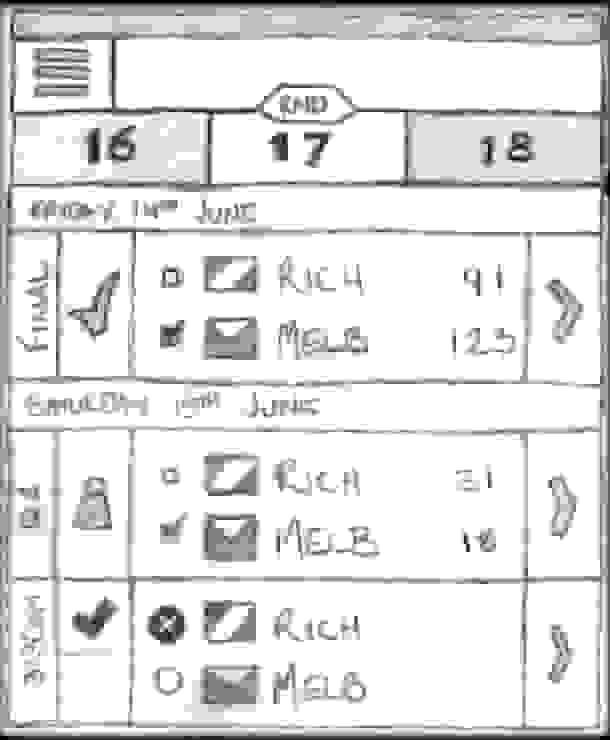 RND
16 17 18
FRIDAY 14TH JUNE
FINAL
RICH 91
MELB 123
SATURDAY 15TH JUNE
RICH 31
MELB 18
RICH
MELB